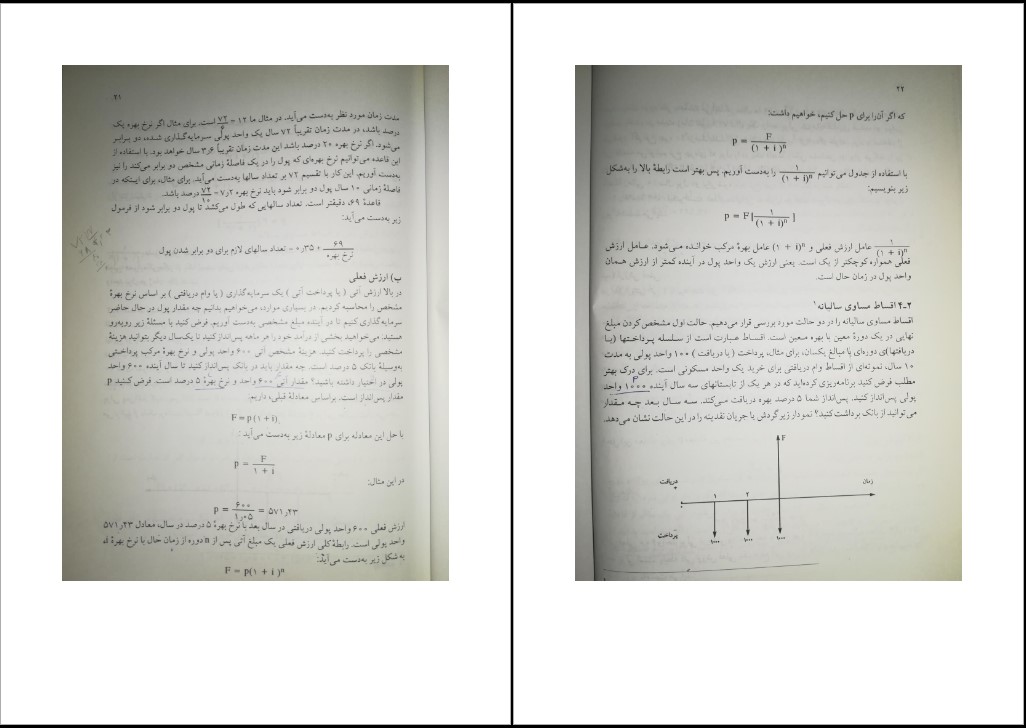 ۲۱
مدت زمان مورد نظر به‌دست می‌آید. در مثال ما ۱۲ = ۷۲/۶ است. برای مثال اگر نرخ بهره یک
درصد باشد، در مدت زمان تقریباً ۷۲ سال یک واحد پولی سرمایه‌گذاری شده، دو برابر
می‌شود. اگر نرخ بهره ۲۰ درصد باشد این مدت زمان تقریباً ۳٫۶ سال خواهد بود. با استفاده از
این قاعده می‌توانیم نرخ بهره‌ای که پول را در یک فاصلهٔ زمانی مشخص دو برابر می‌کند را نیز
به‌دست آوریم. این کار با تقسیم ۷۲ بر تعداد سالها به‌دست می‌آید. برای مثال، برای اینکه در
فاصلهٔ زمانی ۱۰ سال پول دو برابر شود باید نرخ بهره ۷٫۲ = ۷۲/۱۰ درصد باشد.
قاعدهٔ ۶۹، دقیقتر است. تعداد سالهایی که طول می‌کشد تا پول دو برابر شود از فرمول
زیر به‌دست می‌آید:
۶۹/نرخ بهره + ۰٫۳۵ = تعداد سالهای لازم برای دو برابر شدن پول
ب) ارزش فعلی
در بالا ارزش آتی ( یا پرداخت آتی ) یک سرمایه‌گذاری ( یا وام دریافتی ) بر اساس نرخ بهرهٔ
مشخص را محاسبه کردیم. در بسیاری موارد، می‌خواهیم بدانیم چه مقدار پول در حال حاضر
سرمایه‌گذاری کنیم تا در آینده مبلغ مشخصی به‌دست آوریم. فرض کنید با مسئلهٔ زیر روبه‌رو
هستید. می‌خواهید بخشی از درآمد خود را هر ماهه پس‌انداز کنید تا یک‌سال دیگر بتوانید هزینهٔ
مشخصی را پرداخت کنید. هزینهٔ مشخص آتی ۶۰۰ واحد پولی و نرخ بهرهٔ مرکب پرداختی
به‌وسیلهٔ بانک ۵ درصد است. چه مقدار باید در بانک پس‌انداز کنید تا سال آینده ۶۰۰ واحد
پولی در اختیار داشته باشید؟ مقدار آتی ۶۰۰ واحد و نرخ بهرهٔ ۵ درصد است. فرض کنید P
مقدار پس‌انداز است. براساس معادلهٔ قبلی، داریم:
F = p (۱ + i)
با حل این معادله برای p معادلهٔ زیر به‌دست می‌آید :
p = F/(۱ + i)
در این مثال:
p = ۶۰۰/۱٫۰۵ = ۵۷۱٫۲۳
ارزش فعلی ۶۰۰ واحد پولی دریافتی در سال بعد با نرخ بهرهٔ ۵ درصد در سال، معادل ۵۷۱٫۲۳
واحد پولی است. رابطهٔ کلی ارزش فعلی یک مبلغ آتی پس از n دوره از زمان حال با نرخ بهرهٔ i،
به شکل زیر به‌دست می‌آید:
F = p(۱ + i )ⁿ
۲۲
که اگر آن‌را برای p حل کنیم، خواهیم داشت:
p = F/(۱ + i )ⁿ
با استفاده از جدول می‌توانیم ۱/(۱ + i)ⁿ را به‌دست آوریم. پس بهتر است رابطهٔ بالا را به‌شکل
زیر بنویسیم:
p = F[ ۱/(۱ + i )ⁿ ]
۱/(۱ + i)ⁿ عامل ارزش فعلی و (۱ + i)ⁿ عامل بهرهٔ مرکب خوانده می‌شود. عامل ارزش
فعلی همواره کوچکتر از یک است. یعنی ارزش یک واحد پول در آینده کمتر از ارزش همان
واحد پول در زمان حال است.
۴-۲ اقساط مساوی سالیانه۱
اقساط مساوی سالیانه را در دو حالت مورد بررسی قرار می‌دهیم. حالت اول مشخص کردن مبلغ
نهایی در یک دورهٔ معین با بهره معین است. اقساط عبارت است از سلسله پرداختها (یا
دریافتها)ی دوره‌ای با مبالغ یکسان، برای مثال، پرداخت ( یا دریافت ) ۱۰۰ واحد پولی به مدت
۱۰ سال، نمونه‌ای از اقساط وام دریافتی برای خرید یک واحد مسکونی است. برای درک بهتر
مطلب فرض کنید برنامه‌ریزی کرده‌اید که در هر یک از تابستانهای سه سال آینده ۱۰۰۰ واحد
پولی پس‌انداز کنید. پس‌انداز شما ۵ درصد بهره دریافت می‌کند. سه سال بعد چه مقدار
می‌توانید از بانک برداشت کنید؟ نمودار زیر گردش یا جریان نقدینه را در این حالت نشان می‌دهد.
F
دریافت
+
زمان
۱
۲
پرداخت
۱۰۰۰
۱۰۰۰
۱۰۰۰